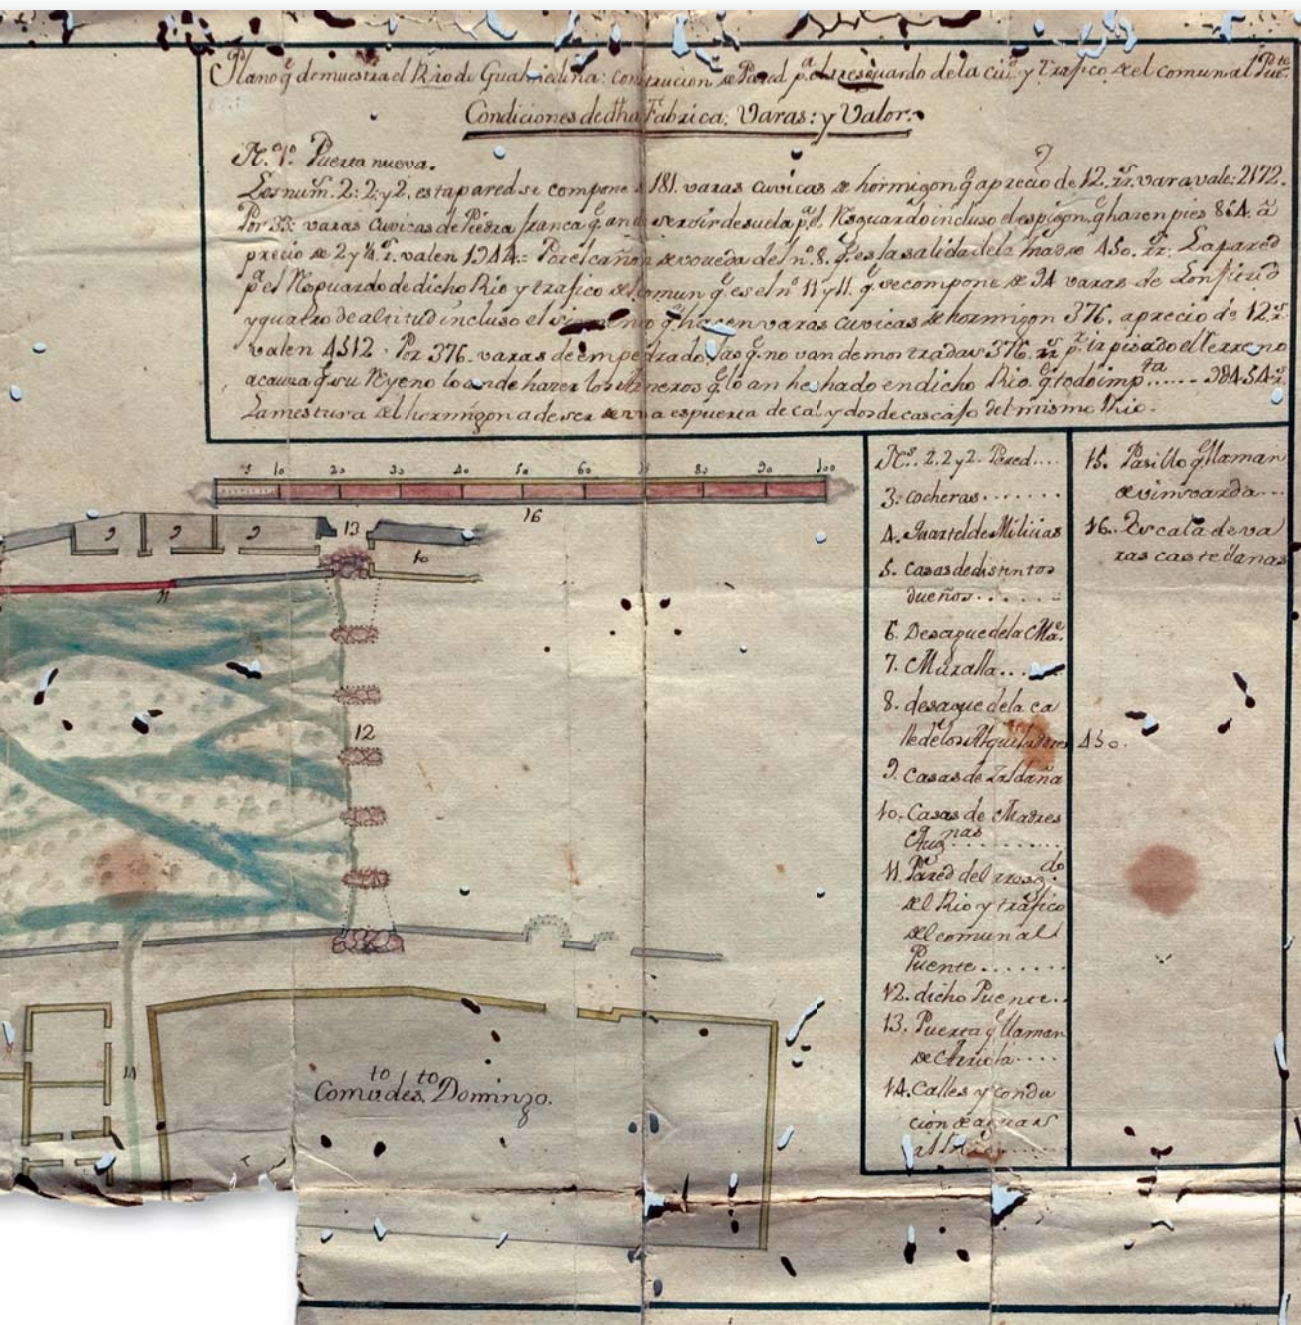 Plano q.e demuestra el Rio de Gualmedina: construcion de Pared p.a el resguardo de la ciu.d y Trafico del comun al P.te
Condiciones de dha Fabrica: Varas: y Valor:
N.º 1º Puerta nueva.
Los num.s 2: 2: y 2. esta pared se compone 181. varas cuvicas de hormigon q.e a precio de 12. rr.s vara vale: 2172.
Por 33: varas cuvicas de Piedra franca q.e an de servir de suela p.a el Resguardo incluso el espigon. q.e hacen pies 864. a
precio de 2 y ¼ r.s valen 1944.= Por el cañon de voveda del nº 8. q.e es la salida de la madre 450. rr.s La pared
p.a el Resguardo de dicho Rio y trafico del comun q.e es el nº 11 y 11. q.e se compone de 94 varas de Lonjitud
y quatro de altitud incluso el simiento q.e hacen varas cuvicas de hormigon 376. a precio de 12 r.s
valen 4512. Por 376. varas de empedrado las q.e no van demostradas 376. rr.s p.r ir pisado el terreno
a causa q.e su Reyeno lo ande hazer los q.e lo an hechado en dicho Rio. q.e todo imp.ta ...... 9845 r.s
La mestura del hormigon a de ser de una espuerta de cal y dos de cascajo del mismo Rio.
5 10 20 30 40 50 60 80 90 100
16
9 9 9 13 10
11
12
14
Com.to de S.to Domingo.
N.s 2. 2 y 2. Pared....
3. cocheras.......
4. Quartel de Milicias
5. Casas de distintos
dueños......
6. Desague de la Ma.e
7. Muralla.....
8. desague de la ca
lle de los Alquiladores 450.
9. Casas de Zaldaña
10. Casas de Madres
Aug.nas..........
11. Pared del resg.do
del Rio y trafico
del comun al
Puente.......
12. dicho Puente..
13. Puerta q.e llaman
de Arriola....
14. Calles y condu
cion de aguas
al Rio......
15. Pasillo q.e llaman
16. Escala de va
ras castellanas